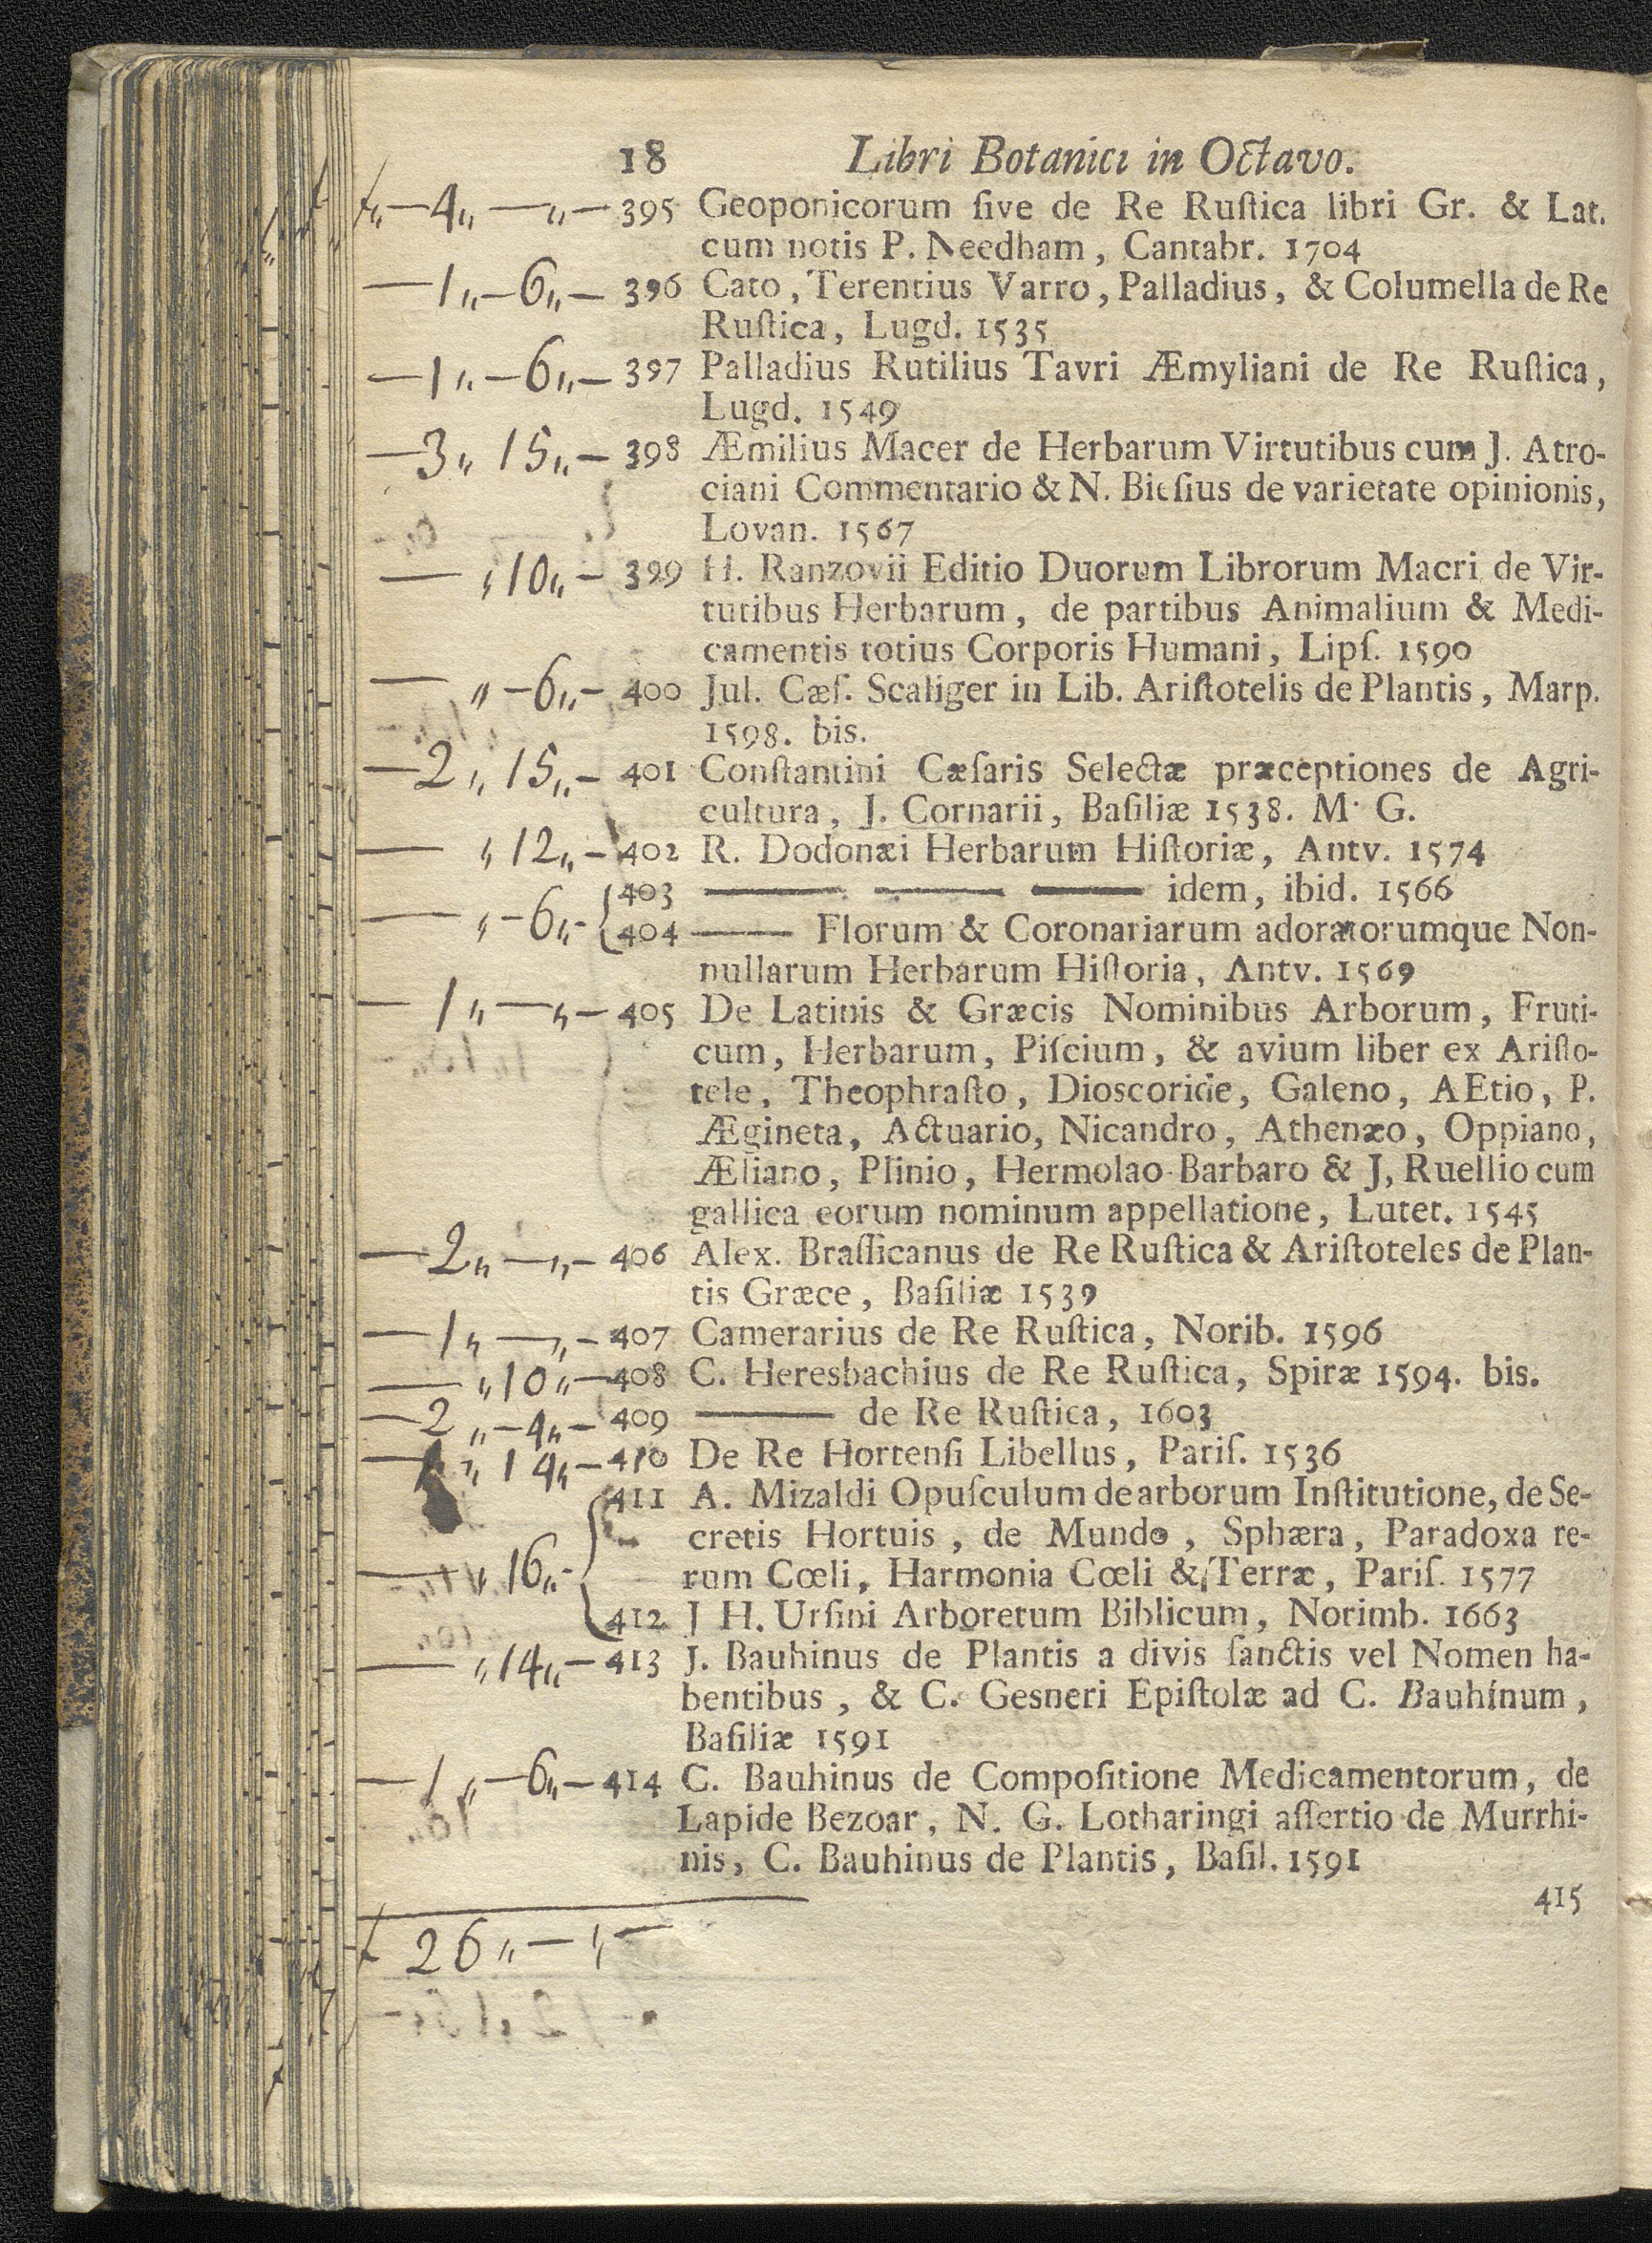 18 Libri Botanici in Octavo.
f„—4„—„— 395 Geoponicorum ſive de Re Ruſtica libri Gr. & Lat.
cum notis P. Needham, Cantabr. 1704
—1„—6„— 396 Cato, Terentius Varro, Palladius, & Columella de Re
Ruſtica, Lugd. 1535
—1„—6„— 397 Palladius Rutilius Tavri Æmyliani de Re Ruſtica,
Lugd. 1549
—3„ 15„— 398 Æmilius Macer de Herbarum Virtutibus cum J. Atro-
ciani Commentario & N. Bieſius de varietate opinionis,
Lovan. 1567
— „10„— 399 H. Ranzovii Editio Duorum Librorum Macri de Vir-
tutibus Herbarum, de partibus Animalium & Medi-
camentis totius Corporis Humani, Lipſ. 1590
— „—6„— 400 Jul. Cæſ. Scaliger in Lib. Ariſtotelis de Plantis, Marp.
1598. bis.
—2„ 15„— 401 Conſtantini Cæſaris Selectæ præceptiones de Agri-
cultura, J. Cornarii, Baſiliæ 1538. M. G.
— „12„— 402 R. Dodonæi Herbarum Hiſtoriæ, Antv. 1574
403 ——— ——— ——— idem, ibid. 1566
— „—6„— 404 —— Florum & Coronariarum adoratorumque Non-
nullarum Herbarum Hiſtoria, Antv. 1569
—1„—„— 405 De Latinis & Græcis Nominibus Arborum, Fruti-
cum, Herbarum, Piſcium, & avium liber ex Ariſto-
tele, Theophraſto, Dioscoride, Galeno, AEtio, P.
Ægineta, Actuario, Nicandro, Athenæo, Oppiano,
Æliano, Plinio, Hermolao Barbaro & J, Ruellio cum
gallica eorum nominum appellatione, Lutet. 1545
—2„—„— 406 Alex. Braſſicanus de Re Ruſtica & Ariſtoteles de Plan-
tis Græce, Baſiliæ 1539
—1„—„— 407 Camerarius de Re Ruſtica, Norib. 1596
— „10„— 408 C. Heresbachius de Re Ruſtica, Spiræ 1594. bis.
—2„—4„— 409 ——— de Re Ruſtica, 1603
—1„ 14„— 410 De Re Hortenſi Libellus, Pariſ. 1536
411 A. Mizaldi Opuſculum de arborum Inſtitutione, de Se-
cretis Hortuis, de Mundo, Sphæra, Paradoxa re-
— „16„— rum Cœli, Harmonia Cœli & Terræ, Pariſ. 1577
412 J H. Urſini Arboretum Biblicum, Norimb. 1663
— „14„— 413 J. Bauhinus de Plantis a divis ſanctis vel Nomen ha-
bentibus, & C. Gesneri Epiſtolæ ad C. Bauhinum,
Baſiliæ 1591
—1„—6„— 414 C. Bauhinus de Compoſitione Medicamentorum, de
Lapide Bezoar, N. G. Lotharingi aſſertio de Murrhi-
nis, C. Bauhinus de Plantis, Baſil. 1591
415
f 26„—„—